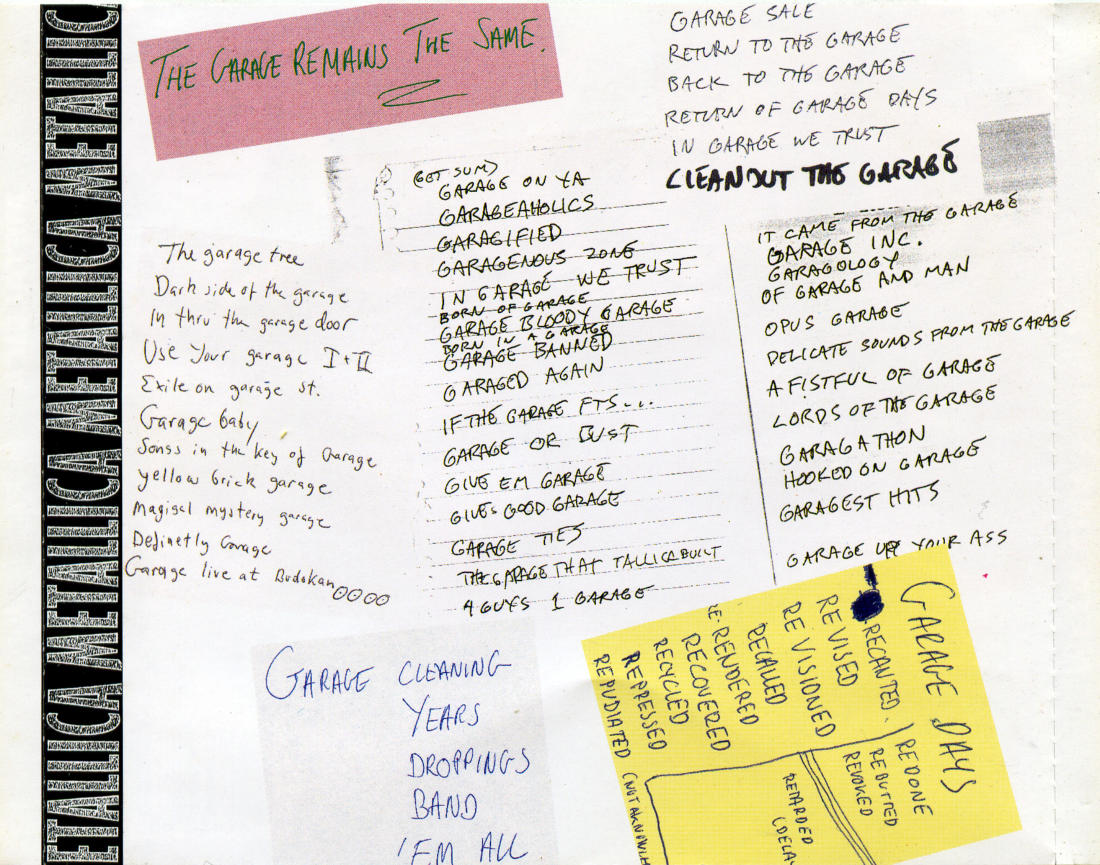 THE GARAGE REMAINS THE SAME.
GARAGE SALE
RETURN TO THE GARAGE
BACK TO THE GARAGE
RETURN OF GARAGE DAYS
IN GARAGE WE TRUST
CLEANOUT THE GARAGE
The garage tree
Dark side of the garage
In thru the garage door
Use Your garage I+II
Exile on garage st.
Garage baby
Songs in the key of Garage
yellow brick garage
Magical mystery garage
Definetly Garage
Garage live at Budokan
(GET SUM)
GARAGE ON YA
GARAGEAHOLICS
GARAGIFIED
GARAGENOUS ZONE
IN GARAGE WE TRUST
BORN OF GARAGE
GARAGE BLOODY GARAGE
BORN IN A GARAGE
GARAGE BANNED
GARAGED AGAIN
IF THE GARAGE FTS...
GARAGE OR BUST
GIVE EM GARAGE
GIVES GOOD GARAGE
GARAGE TIES
THE GARAGE THAT TALLICA BUILT
4 GUYS 1 GARAGE
IT CAME FROM THE GARAGE
GARAGE INC.
GARAGOLOGY
OF GARAGE AND MAN
OPUS GARAGE
DELICATE SOUNDS FROM THE GARAGE
A FISTFUL OF GARAGE
LORDS OF THE GARAGE
GARAGATHON
HOOKED ON GARAGE
GARAGEST HITS
GARAGE UP YOUR ASS
GARAGE CLEANING
YEARS
DROPPINGS
BAND
'EM ALL
GARAGE DAYS
RECANTED.
REVISED
REVISIONED
RECALLED
RE-RENDERED
RECOVERED
RECYCLED
REPRESSED
REPUDIATED
REDONE
REBUTTED
REVOKED
RETARDED
METALLICA METALLICA METALLICA METALLICA